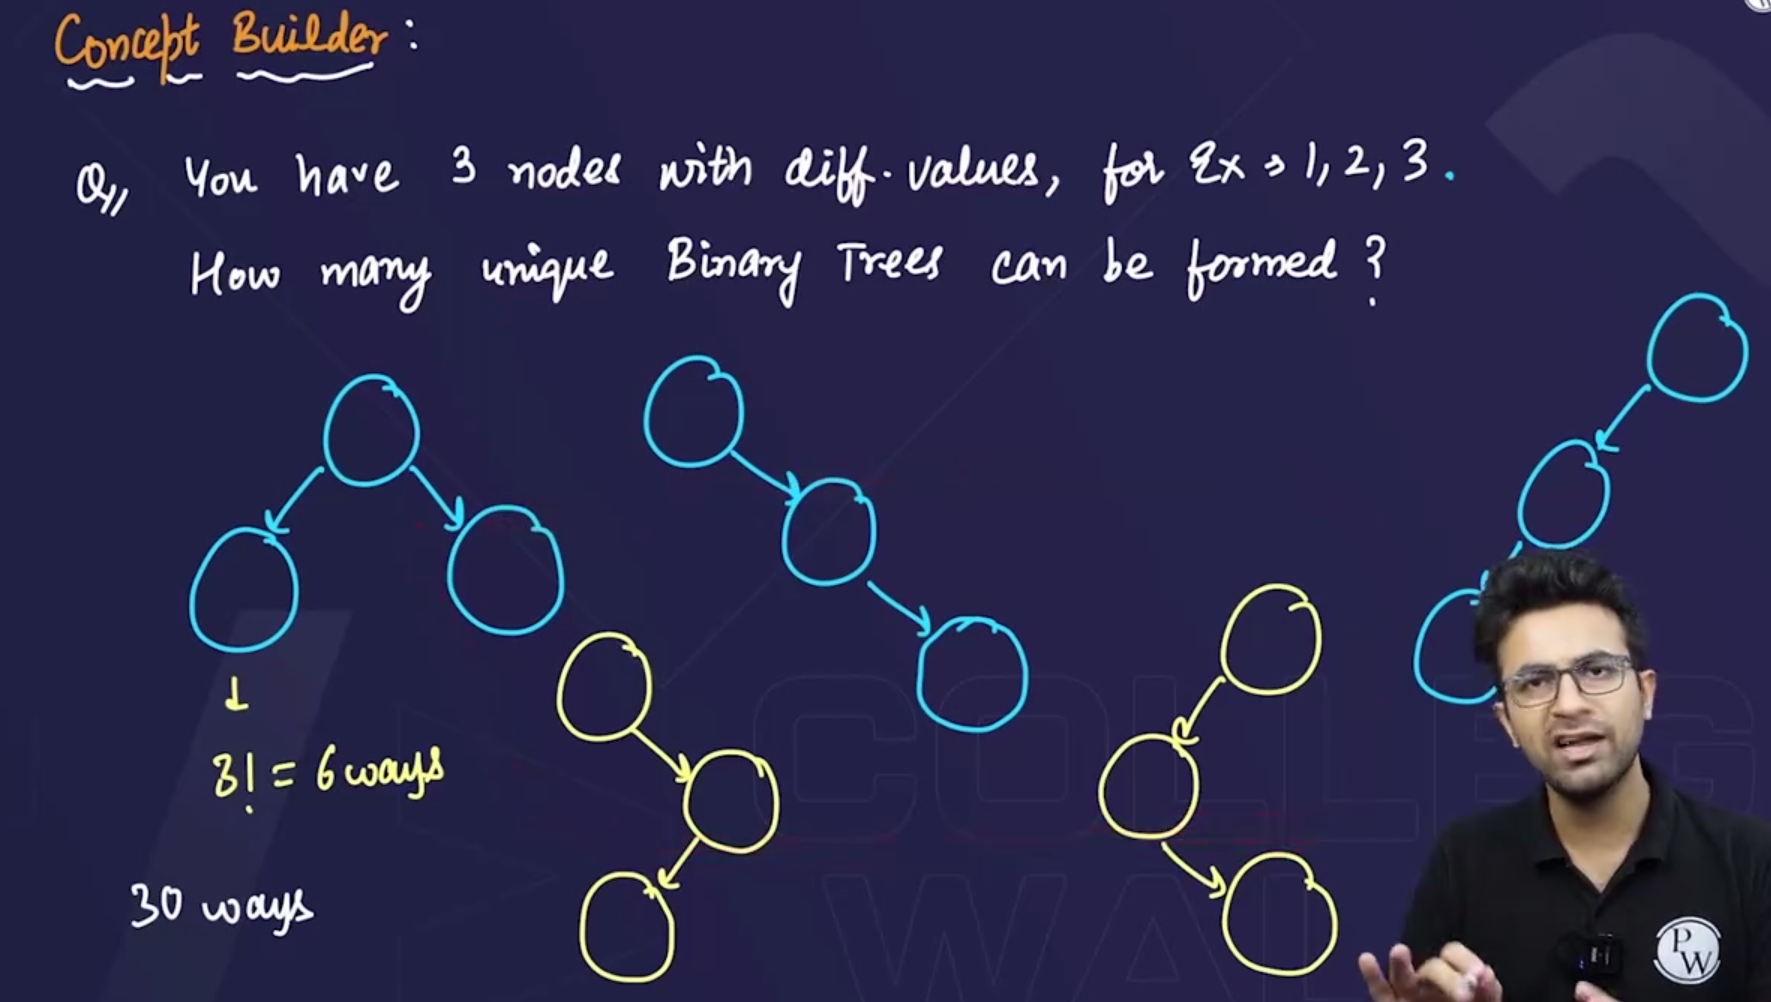 Concept Builder :
Q,, You have 3 nodes with diff. values, for Ex → 1, 2, 3.
How many unique Binary Trees can be formed ?
3! = 6 ways
30 ways
COLLEG
WAL
PW